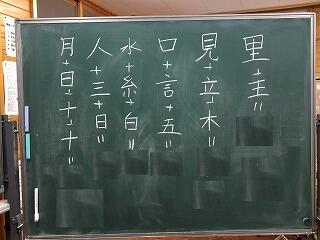 里+王=
見+立+木=
口+言+五=
水+糸+白=
人+三+日=
月+日+十+十=